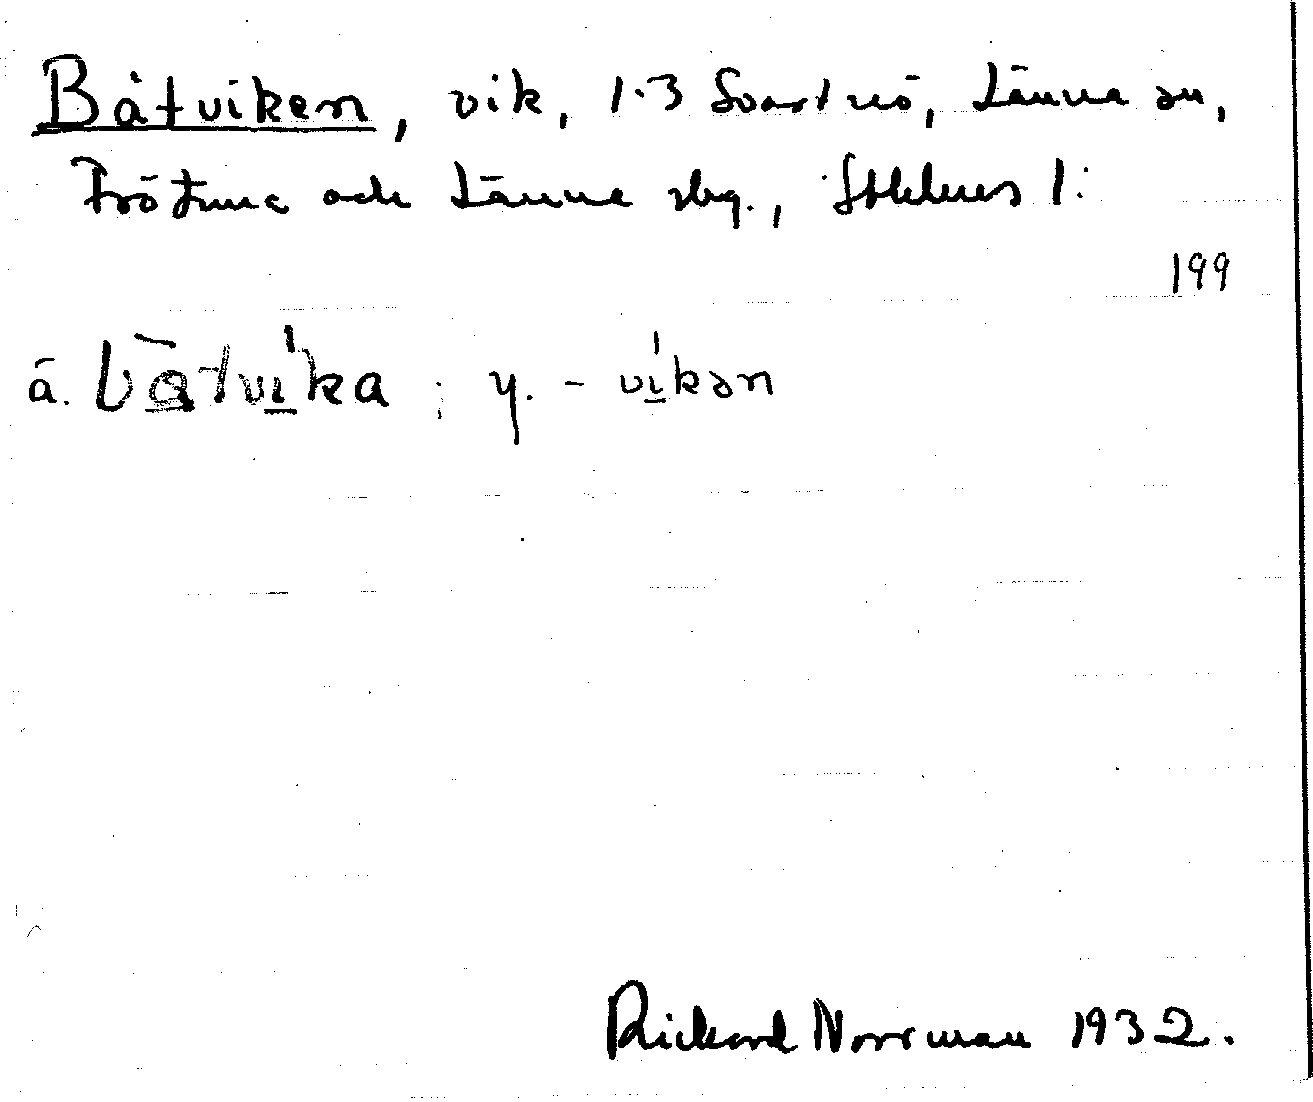 Båtviken, vik, 1:3 Svartnö, Länna sn,
Frötuna och Länna sbg., Sthlms l:
199
ä. bå̀tvìka ; y. -vìkən
Rickard Norrman 1932.